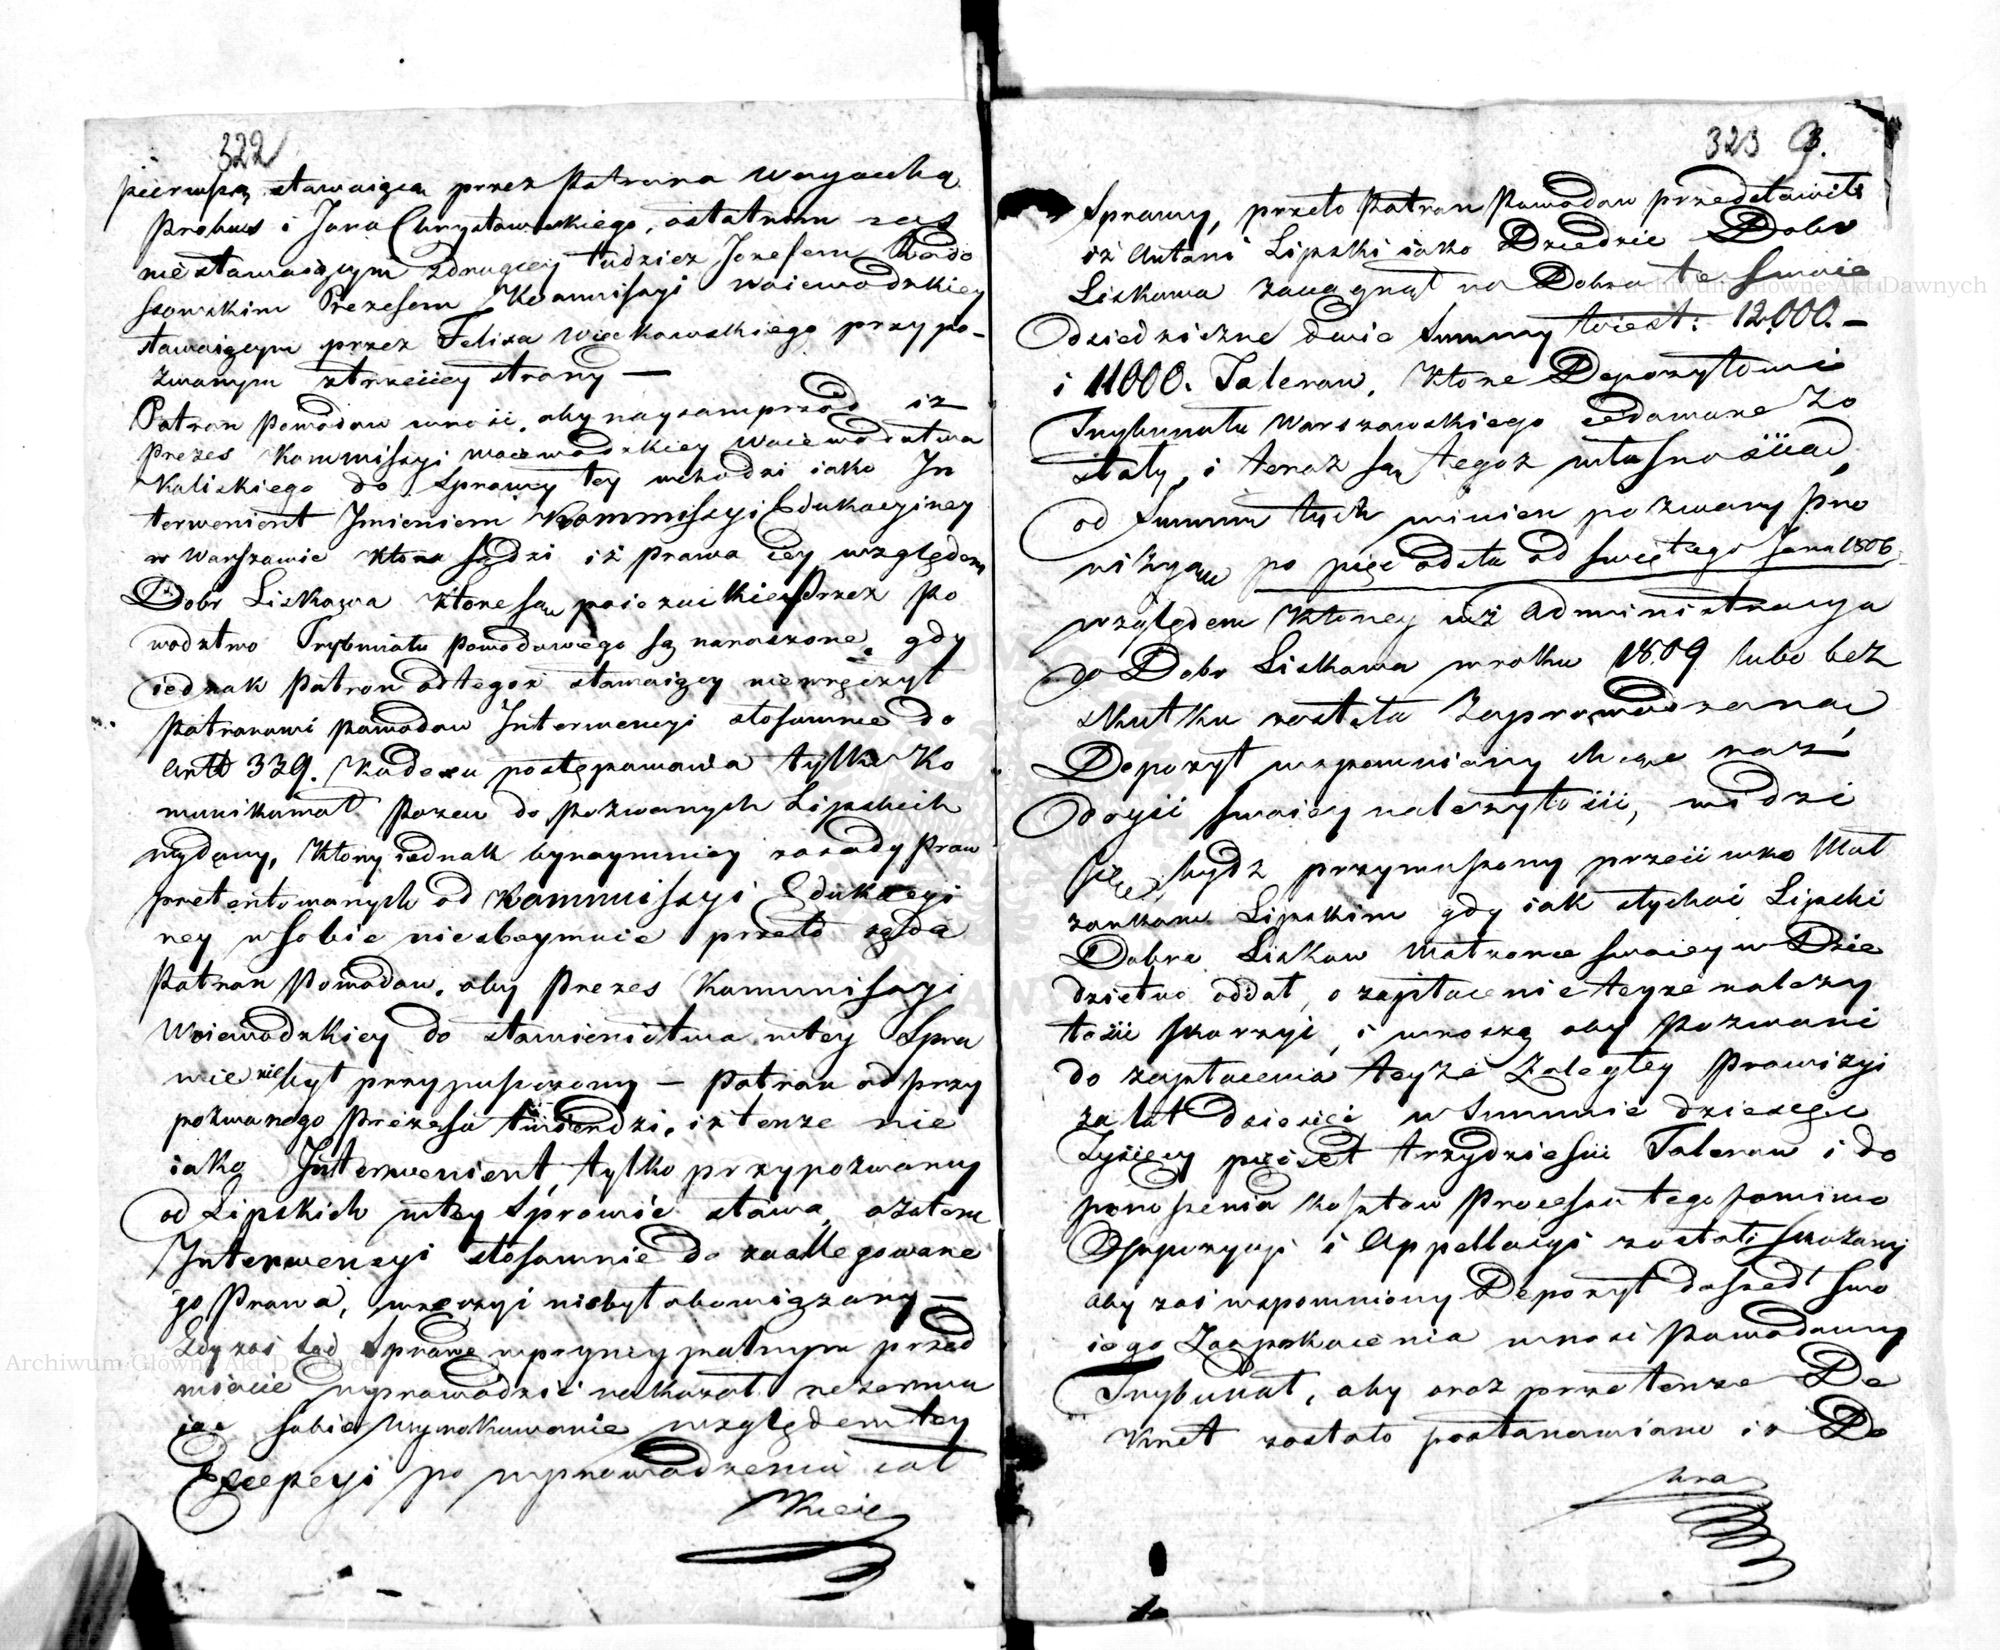 322
pierwszą stawaiącą przez Patrona Woyciecha
Probus i Jana Chrystowskiego, ostatnim zaś
niestawaiącym z drugiey tudzież Jozefem Rado
szowskim Prezesem Kommissyi Woiewodzkiey
stawaiącym przez Felixa Wieckowskiego przypo-
zwanym z trzeciey strony —
Patron Powodow wnosi, aby nayzamprzod iż
Prezes Kommissyi Woiewodzkiey Woiewodztwa
Kaliskiego do Sprawy tey wchodzi iako In
terwenient Imieniem Kommissyi Edukacyiney
w Warszawie która sądzi iż prawa iey względem
Dobr Liskowa które są poiezuickie przez Po
wodztwo Trybunału Powodowego są naruszone, gdy
iednak Patron od tegoż stawaiący niewręczył
Patronowi Powodow Interwencyi stosownie do
Artt 339. Kodexu postępowania tylko Ko
munikował Pozew do Pozwanych Lipskich
wydany, który iednak bynaymniey zasady Praw
pretentowanych od Kommissyi Edukacyi
ney w sobie nieobeymuie przeto żąda
Patron Powodow, aby Prezes Kommissyi
Woiewodzkiey do stawienictwa w tey Spra
wie nie był przypuszczony — Patron od przy
pozwanego Prezesa twierdzi, iż tenże nie
iako Interwenient, tylko przypozwany
od Lipskich w tey Sprawie stawa, a zatem
Interwencyi stosownie do zaallegowane
go Prawa, wręczyć niebył obowiązany —
Gdy zaś Sąd Sprawę w pryncypalnym przed
miocie wyprowadzić nakazał rezerwu
iąc sobie Wyrokowanie względem tey
Excepcyi po wyprowadzeniu cał
kiey
323 9.
Sprawy, przeto Patron Powodow przedstawił
iż Antoni Lipski iako Dziedzic Dobr
Liskowa zaciągnął na Dobra te swoie
Odziedziczne dwie Summy to iest: 12,000. —
i 11000. Talerow, które Depozytowi
Trybunału Warszawskiego cedowane zo
stały, i teraz są tegoż własnością,
od Summ tych winien pozwany Pro
wizyą po pięć od sta od świętego Jana 1806
względem którey iuż administracya
do Dobr Liskowa w roku 1809 lubo bez
skutku została zaprowadzona,
Depozyt wspomniony chcąc raz
doyść swoiey należytości, widzi
się bydź przymuszony przeciwko Mał
żonkom Lipskim gdy iak słychać Lipski
Dobra Liskow Małżonce swoiey w Dzie
dzictwo oddał, o zapłacenie teyże należy
tości skarżyć, i wnoszą aby Pozwani
do zapłacenia teyże zaległey Prowizyi
za lat dziesięć w Summie dziesięć
Tysięcy pięćset trzydzieści Talerow i do
ponoszenia kosztow Processu tego pomimo
Oppozycyi i Appellacyi zostali skazani
aby zaś wspomniony Depozyt doszedł swo
iego Zaspokoienia wnosi Powodowy
Trybunał, aby oraz przez tenże De
kret zostało postanowiono iż Do
bra